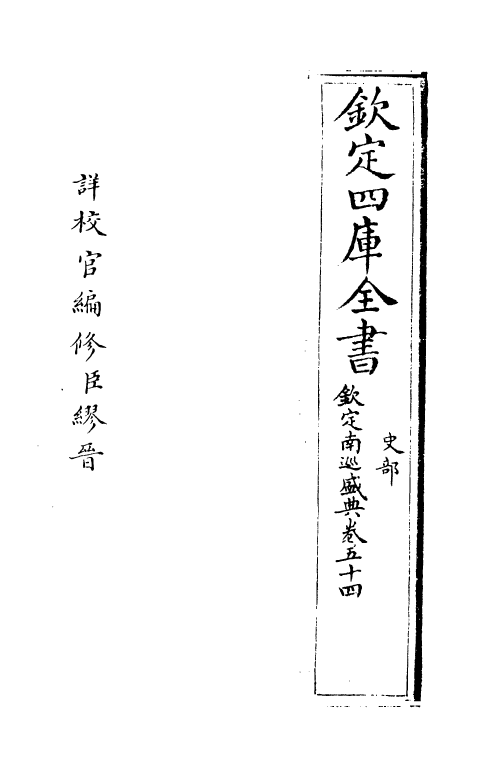 欽定四庫全書
史部
欽定南巡盛典卷五十四
詳校官編修臣繆晉